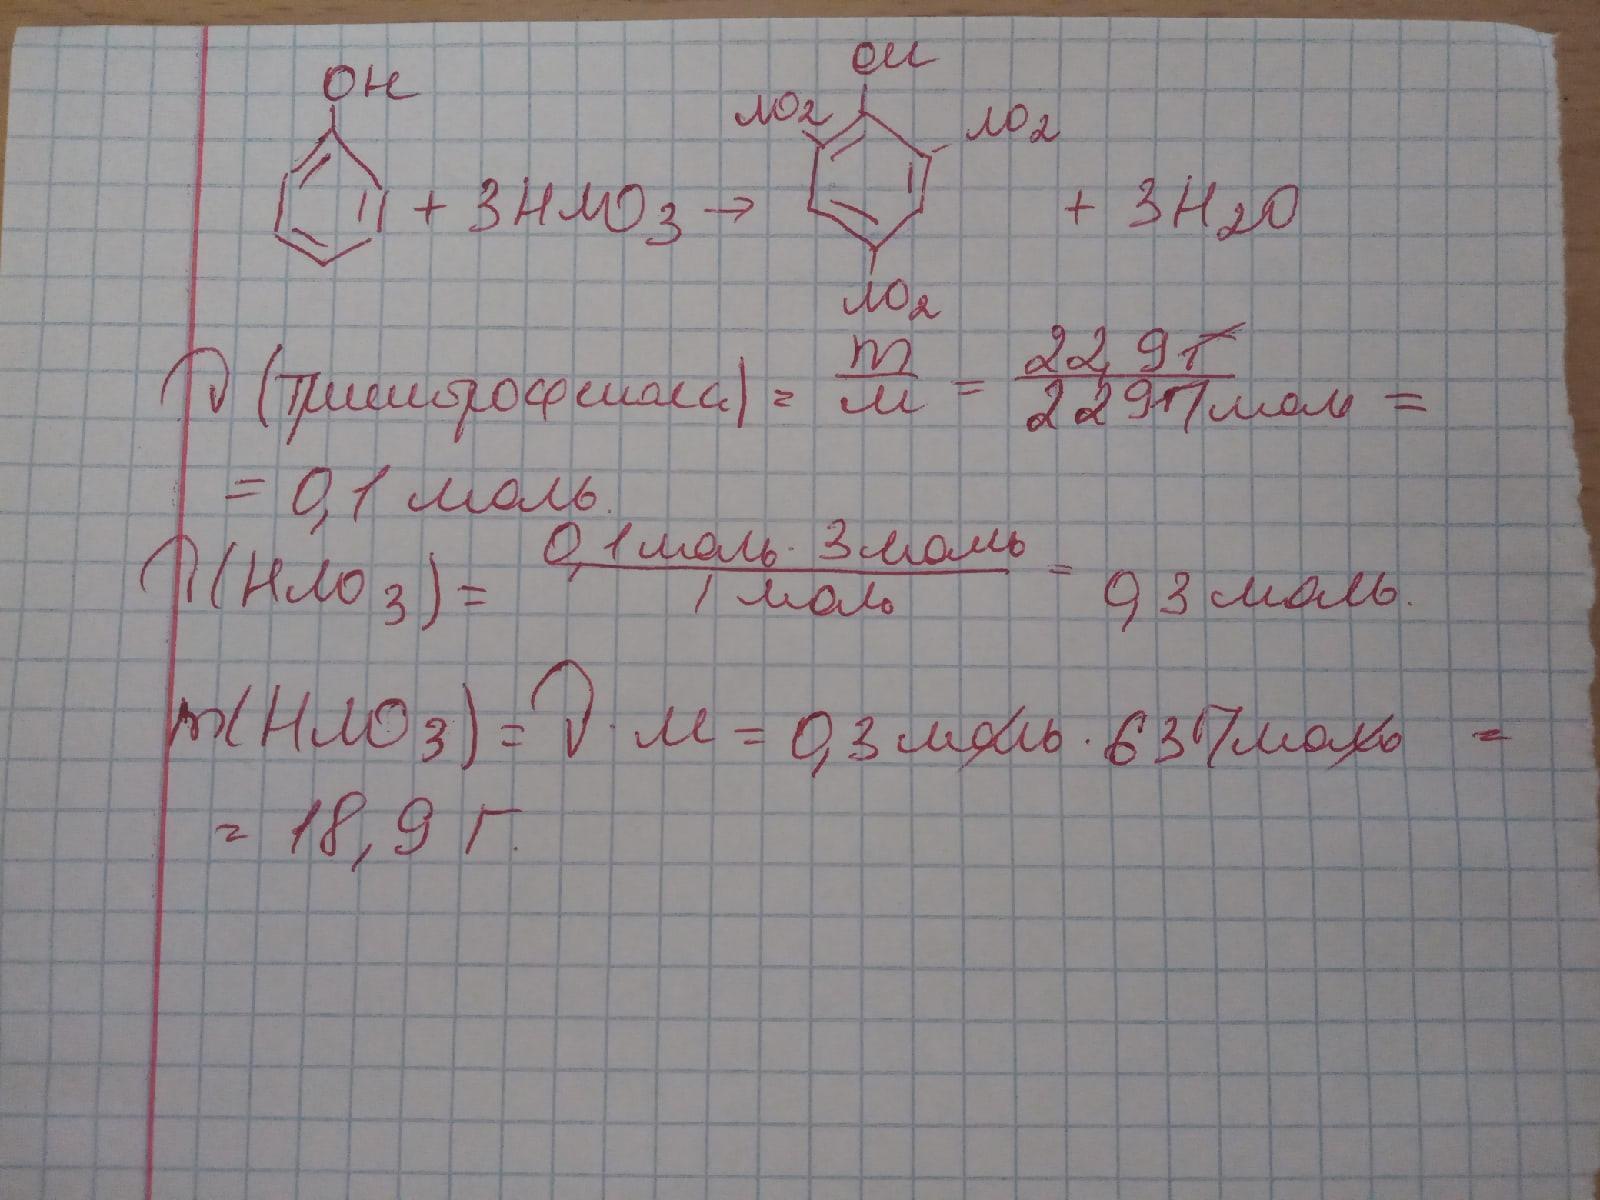 OH
OH
NO2
NO2
+ 3HNO3 → + 3H2O
NO2
ν(тринитрофенола) = m/M = 22,9г/229г/моль =
= 0,1 моль.
ν(HNO3) = 0,1моль · 3моль/1 моль = 0,3 моль.
m(HNO3) = ν · M = 0,3 моль · 63г/моль =
= 18,9 г.